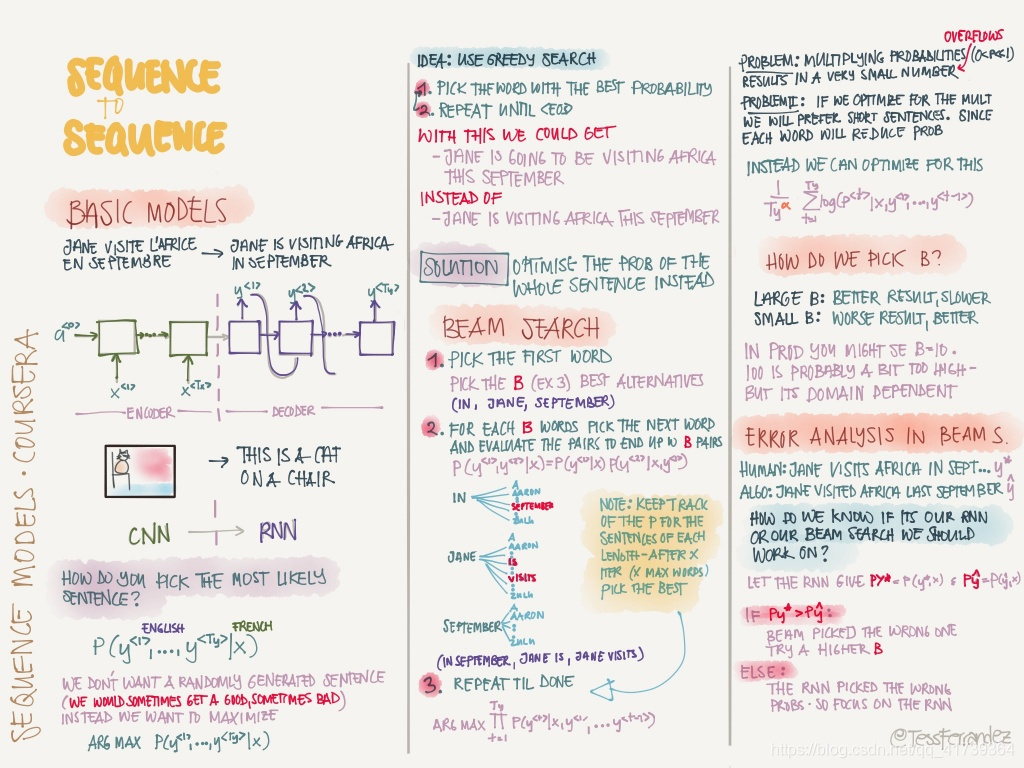 SEQUENCE
TO
SEQUENCE
BASIC MODELS
JANE VISITE L'AFRICE → JANE IS VISITING AFRICA
EN SEPTEMBRE IN SEPTEMBER
y<1> y<2> y<Ty>
a<0>
x<1> x<Tx>
ENCODER DECODER
→ THIS IS A CAT
ON A CHAIR
CNN → RNN
HOW DO YOU PICK THE MOST LIKELY
SENTENCE?
ENGLISH FRENCH
P(y<1>,...,y<Ty>|x)
WE DON'T WANT A RANDOMLY GENERATED SENTENCE
(WE WOULD SOMETIMES GET A GOOD, SOMETIMES BAD)
INSTEAD WE WANT TO MAXIMIZE
ARG MAX P(y<1>,...,y<Ty>|x)
SEQUENCE MODELS · COURSERA
IDEA: USE GREEDY SEARCH
1. PICK THE WORD WITH THE BEST PROBABILITY
2. REPEAT UNTIL <EOS>
WITH THIS WE COULD GET
- JANE IS GOING TO BE VISITING AFRICA
THIS SEPTEMBER
INSTEAD OF
- JANE IS VISITING AFRICA THIS SEPTEMBER
SOLUTION OPTIMISE THE PROB OF THE
WHOLE SENTENCE INSTEAD
BEAM SEARCH
1. PICK THE FIRST WORD
PICK THE B (EX 3) BEST ALTERNATIVES
(IN, JANE, SEPTEMBER)
2. FOR EACH B WORDS PICK THE NEXT WORD
AND EVALUATE THE PAIRS TO END UP W B PAIRS
P(y<1>,y<2>|x)=P(y<1>|x) P(y<2>|x,y<1>)
A
IN AARON
SEPTEMBER
ZULU
A
AARON
JANE IS
VISITS
ZULU
A
AARON
SEPTEMBER
ZULU
NOTE: KEEP TRACK
OF THE P FOR THE
SENTENCES OF EACH
LENGTH - AFTER X
ITER (X MAX WORDS)
PICK THE BEST
(IN SEPTEMBER, JANE IS, JANE VISITS)
3. REPEAT TIL DONE
ARG MAX Ty ∏ t=1 P(y<t>|x,y<1>,...y<t-1>)
OVERFLOWS
PROBLEM: MULTIPLYING PROBABILITIES (0<P<<1)
RESULTS IN A VERY SMALL NUMBER
PROBLEM II: IF WE OPTIMIZE FOR THE MULT
WE WILL PREFER SHORT SENTENCES. SINCE
EACH WORD WILL REDUCE PROB
INSTEAD WE CAN OPTIMIZE FOR THIS
1/Ty^α Ty ∑ t=1 log(P<t>|x,y<1>,...,y<t-1>)
HOW DO WE PICK B?
LARGE B: BETTER RESULT, SLOWER
SMALL B: WORSE RESULT, BETTER
IN PROD YOU MIGHT SE B=10.
100 IS PROBABLY A BIT TOO HIGH -
BUT ITS DOMAIN DEPENDENT
ERROR ANALYSIS IN BEAM S.
HUMAN: JANE VISITS AFRICA IN SEPT... y*
ALGO: JANE VISITED AFRICA LAST SEPTEMBER ŷ
HOW DO WE KNOW IF ITS OUR RNN
OR OUR BEAM SEARCH WE SHOULD
WORK ON?
LET THE RNN GIVE Py* = P(y*,x) & Pŷ=P(ŷ,x)
IF Py* > Pŷ:
BEAM PICKED THE WRONG ONE
TRY A HIGHER B
ELSE:
THE RNN PICKED THE WRONG
PROBS - SO FOCUS ON THE RNN
@TessFerrandez